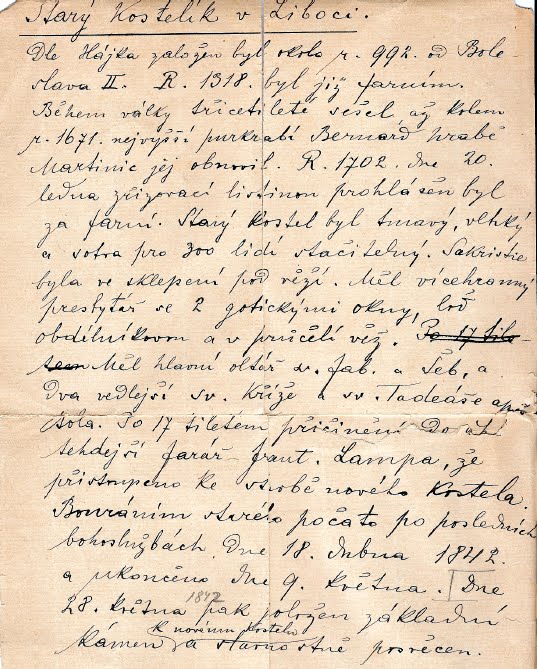 Starý Kostelík v Liboci.
Dle Hájka založen byl okolo r. 992. od Bole-
slava II. R. 1318. byl již farním.
Během války třicetileté sešel až kolem
r. 1671. nejvyšší purkrabí Bernard hrabě
Martinic jej obnovil. R. 1702. dne 20.
ledna zřizovací listinou prohlášen byl
za farní. Starý kostel byl tmavý, vlhký
a sotva pro 300 lidí stačitelný. Sakristie
byla ve sklepení pod věží. Měl vícehranný
presbytář se 2 gotickými okny, loď
obdélníkovou a v průčelí věž. Po 17 tile-
tém Měl hlavní oltář sv. Fab. a Šeb. a
dva vedlejší sv. Kříže a sv. Tadeáše apoš-
tola. Po 17 tiletém přičinění docílil
tehdejší farář Frant. Lampa, že
přistoupeno ke stavbě nového kostela.
Bouráním starého počato po posledních
bohoslužbách. Dne 18. dubna 1842.
a ukončeno dne 9. května. Dne
28. května 1842 pak položen základní
kámen k novému kostelu a slavnostně posvěcen.